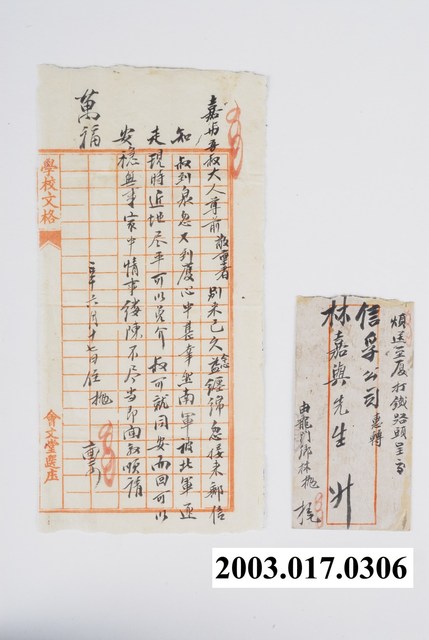 嘉與吾叔大人尊前敬稟者別來已久益念錦忽接來郵信
知叔到泉忽又到廈心中甚幸無南軍被北軍逐
走現時近地尽平可以免介叔可就同安而回可以
安穩無事家中情事縷陳不尽当即面叙順請
萬福
六月十七日侄拋
稟
學校文格
會文堂選庄
煩送至廈打鐵路頭呈交
信孚公司惠轉
林嘉與先生升
由龍門鄉林拋托
2003.017.0306